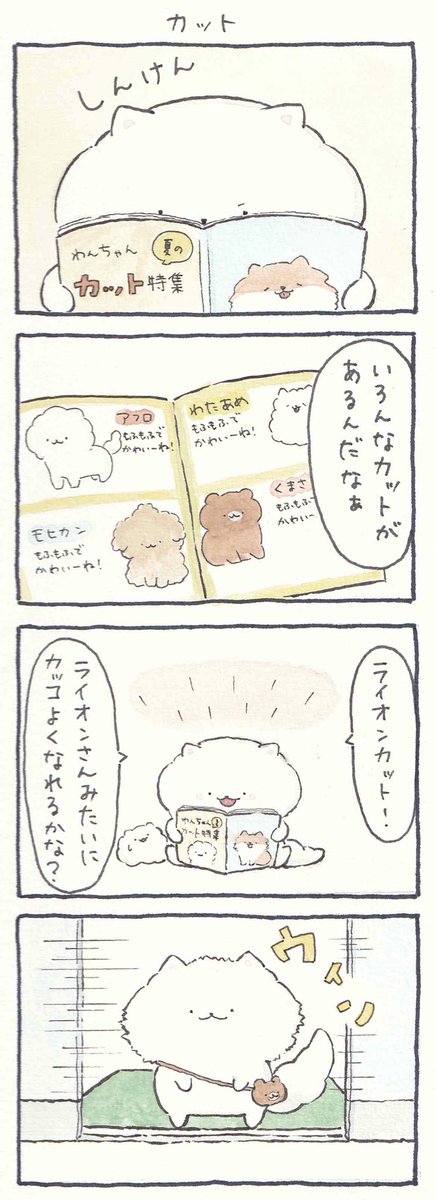 カット
しんけん
わんちゃん
夏の
カット特集
いろんなカットが
あるんだなぁ
アフロ
もふもふで
かわいーね!
わたあめ
もふもふで
かわいーね!
モヒカン
もふもふで
かわいーね!
くまさ
もふもふ
かわいー
ライオンカット!
ライオンさんみたいに
カッコよくなれるかな?
わんちゃん
カット特集
ウィーン